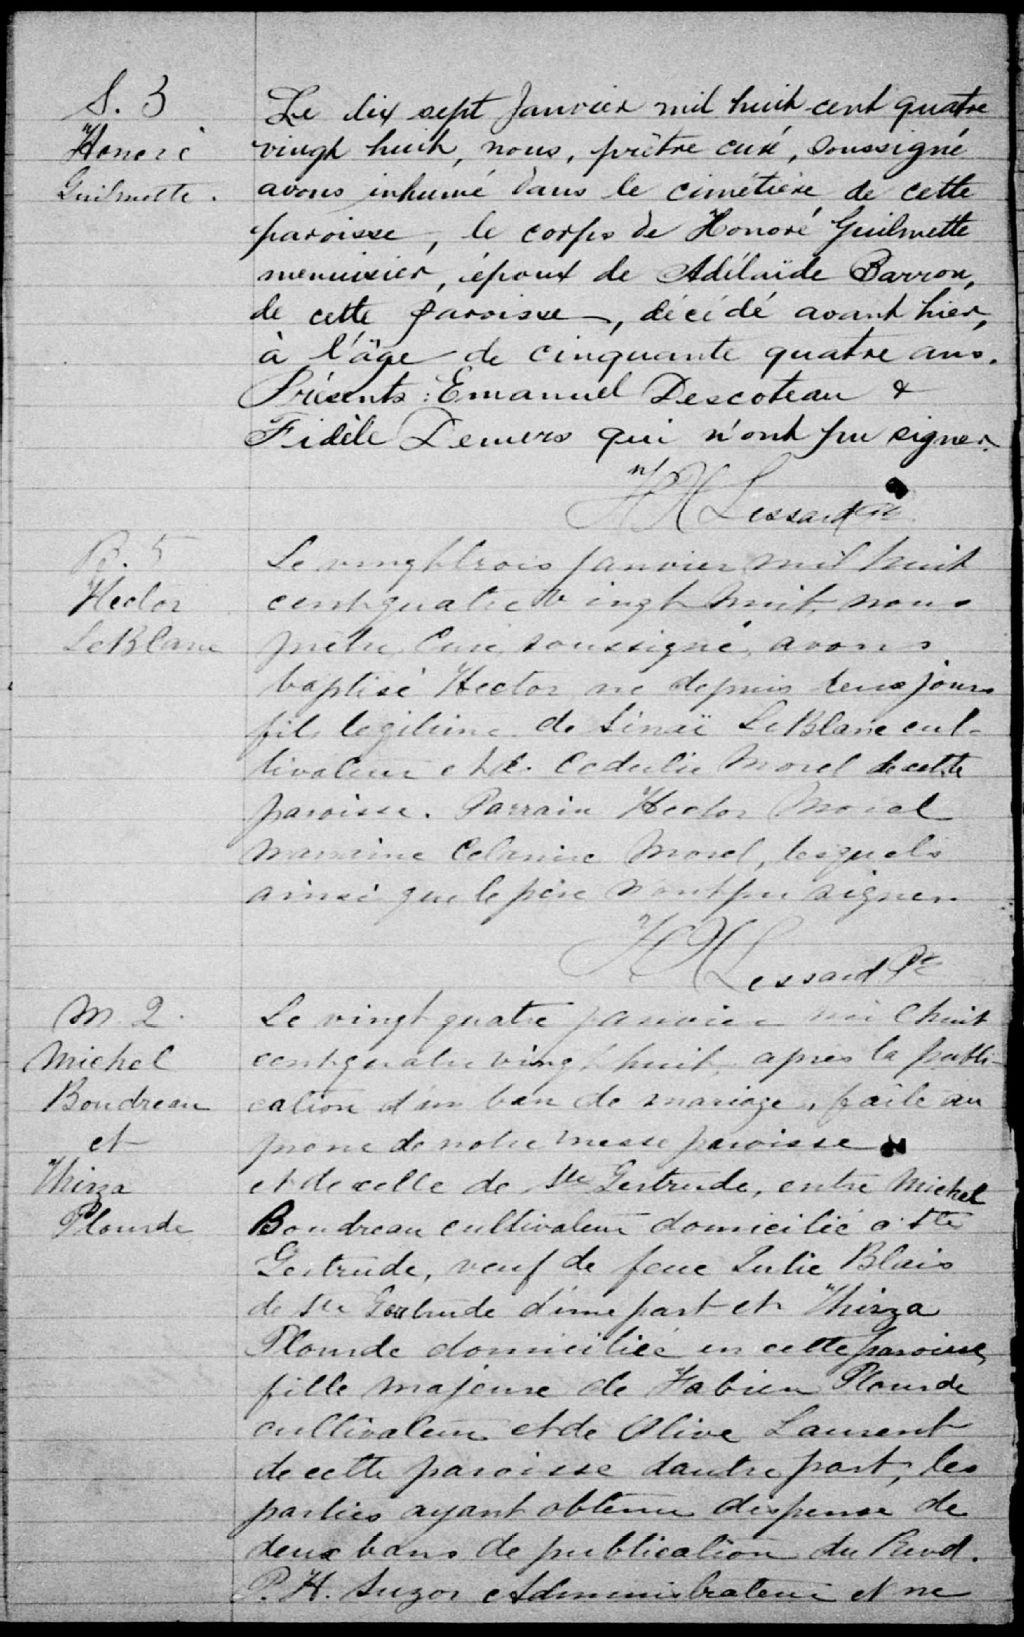 S. 3
Honoré
Guilmette.
Le dix sept Janvier mil huit cent quatre
vingt huit, nous, prêtre curé, soussigné
avons inhumé dans le cimétière de cette
paroisse, le corps de Honoré Guilmette
menuisier, époux de Adélaïde Barron,
de cette paroisse, décédé avant hier,
à l'âge de cinquante quatre ans.
Présents: Emanuel Descoteau &
Fidèle Demers qui n'ont pu signer.
H Lessard
B. 5
Hector
LeBlanc
Le vingt trois janvier mil huit
cent quatre vingt huit, nous
prêtre curé soussigné, avons
baptisé Hector né depuis deux jours
fils légitime de Sinaï LeBlanc cul-
tivateur et de Cedulie Morel de cette
paroisse. Parrain Hector Morel
marraine Celanire Morel, lesquels
ainsi que le père n'ont pu signer.
H Lessard Ptr
M. 2.
Michel
Boudreau
et
Thirza
Plourde
Le vingt quatre janvier mil huit
cent quatre vingt huit, après la publi-
cation d'un ban de mariage, faite au
prone de notre messe paroisse
et de celle de Ste Gertrude, entre Michel
Boudreau cultivateur domicilié à Ste
Gertrude, veuf de feue Julie Blais
de Ste Gertrude d'une part et Thirza
Plourde domiciliée en cette paroisse,
fille majeure de Fabien Plourde
cultivateur et de Olive Laurent
de cette paroisse dautre part, les
parties ayant obtenu dispense de
deux bans de publication du Revd.
P. H. Suzor Administrateur et ne